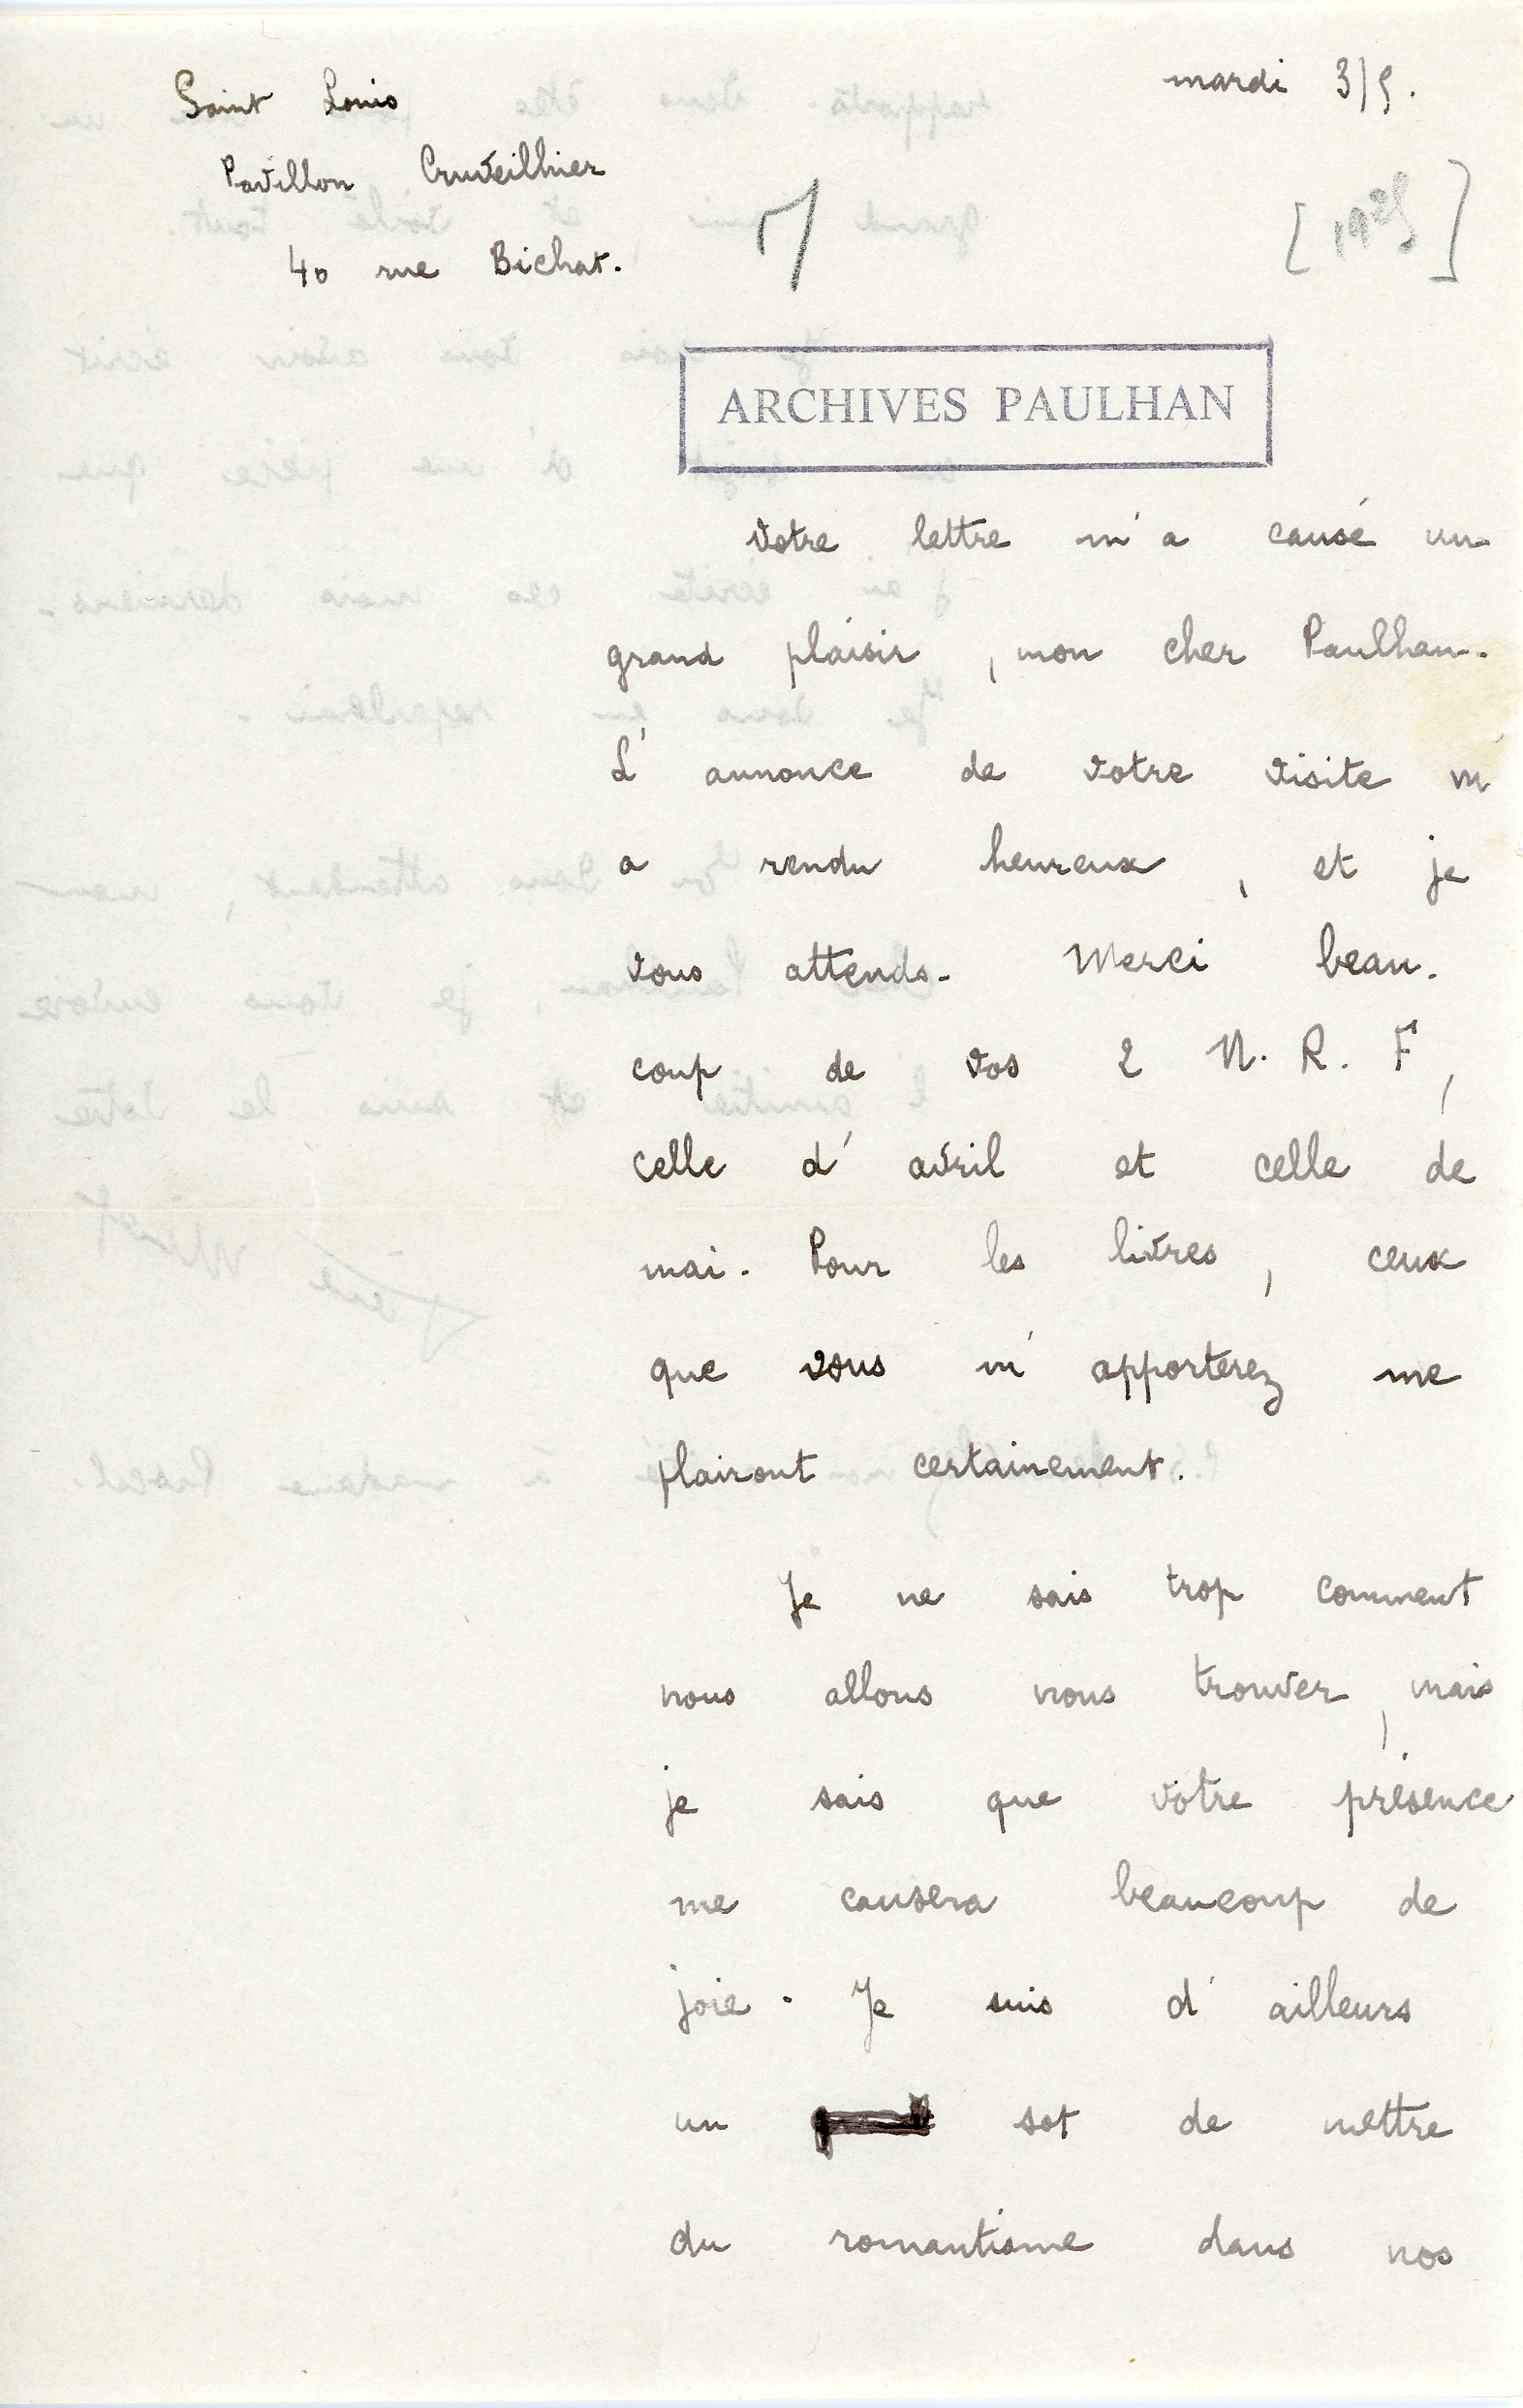 Saint Louis
mardi 3/5.
Pavillon Cruveilhier
40 rue Bichat.
ARCHIVES PAULHAN
Votre lettre m'a causé un
grand plaisir, mon cher Paulhan.
L'annonce de votre visite m'
a rendu heureux, et je
vous attends. Merci beau-
coup de vos 2 N. R. F,
celle d'avril et celle de
mai. Pour les livres, ceux
que vous m'apporterez me
plairont certainement.
Je ne sais trop comment
nous allons nous trouver, mais
je sais que votre présence
me causera beaucoup de
joie. Je suis d'ailleurs
un sot de mettre
du romantisme dans nos